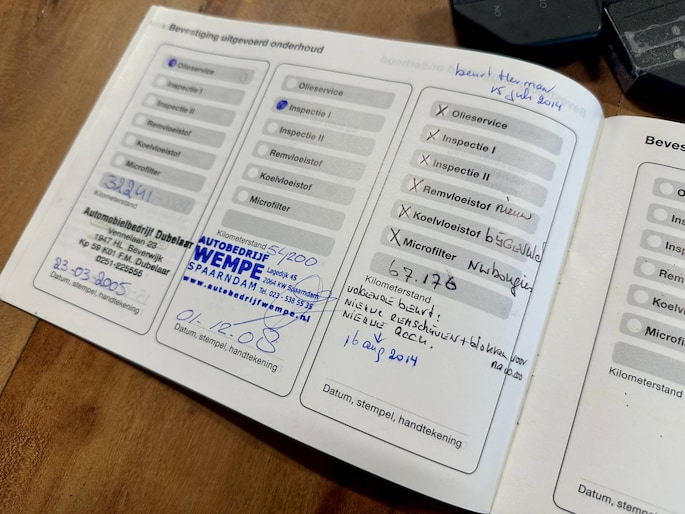 Bevestiging uitgevoerd onderhoud
Olieservice
Inspectie I
Inspectie II
Remvloeistof
Koelvloeistof
Microfilter
32241
Kilometerstand
Automobielbedrijf Dubelaar
Vennelaan 23
1947 HL Beverwijk
Kp 59 K01 F.M. Dubelaar
0251-225555
23-03-2005
Datum, stempel, handtekening
Olieservice
Inspectie I
Inspectie II
Remvloeistof
Koelvloeistof
Microfilter
Kilometerstand 54200
AUTOBEDRIJF
WEMPE Lagedijk 45
2064 KW Spaarndam
SPAARNDAM Tel. 023 - 538 55 38
www.autobedrijfwempe.nl
01-12-08
Datum, stempel, handtekening
beurt Herman
15 juli 2014
X Olieservice
X Inspectie I
X Inspectie II
X Remvloeistof nieuw
X Koelvloeistof
X Microfilter
67.176
Kilometerstand
volgende beurt:
nieuwe remschijven + blokken voor
nieuwe accu.
16 aug 2014
Datum, stempel, handtekening
Beves
O
Ins
Insp
Rem
Koelv
Microfi
Kilometerstand
Datum, stemp